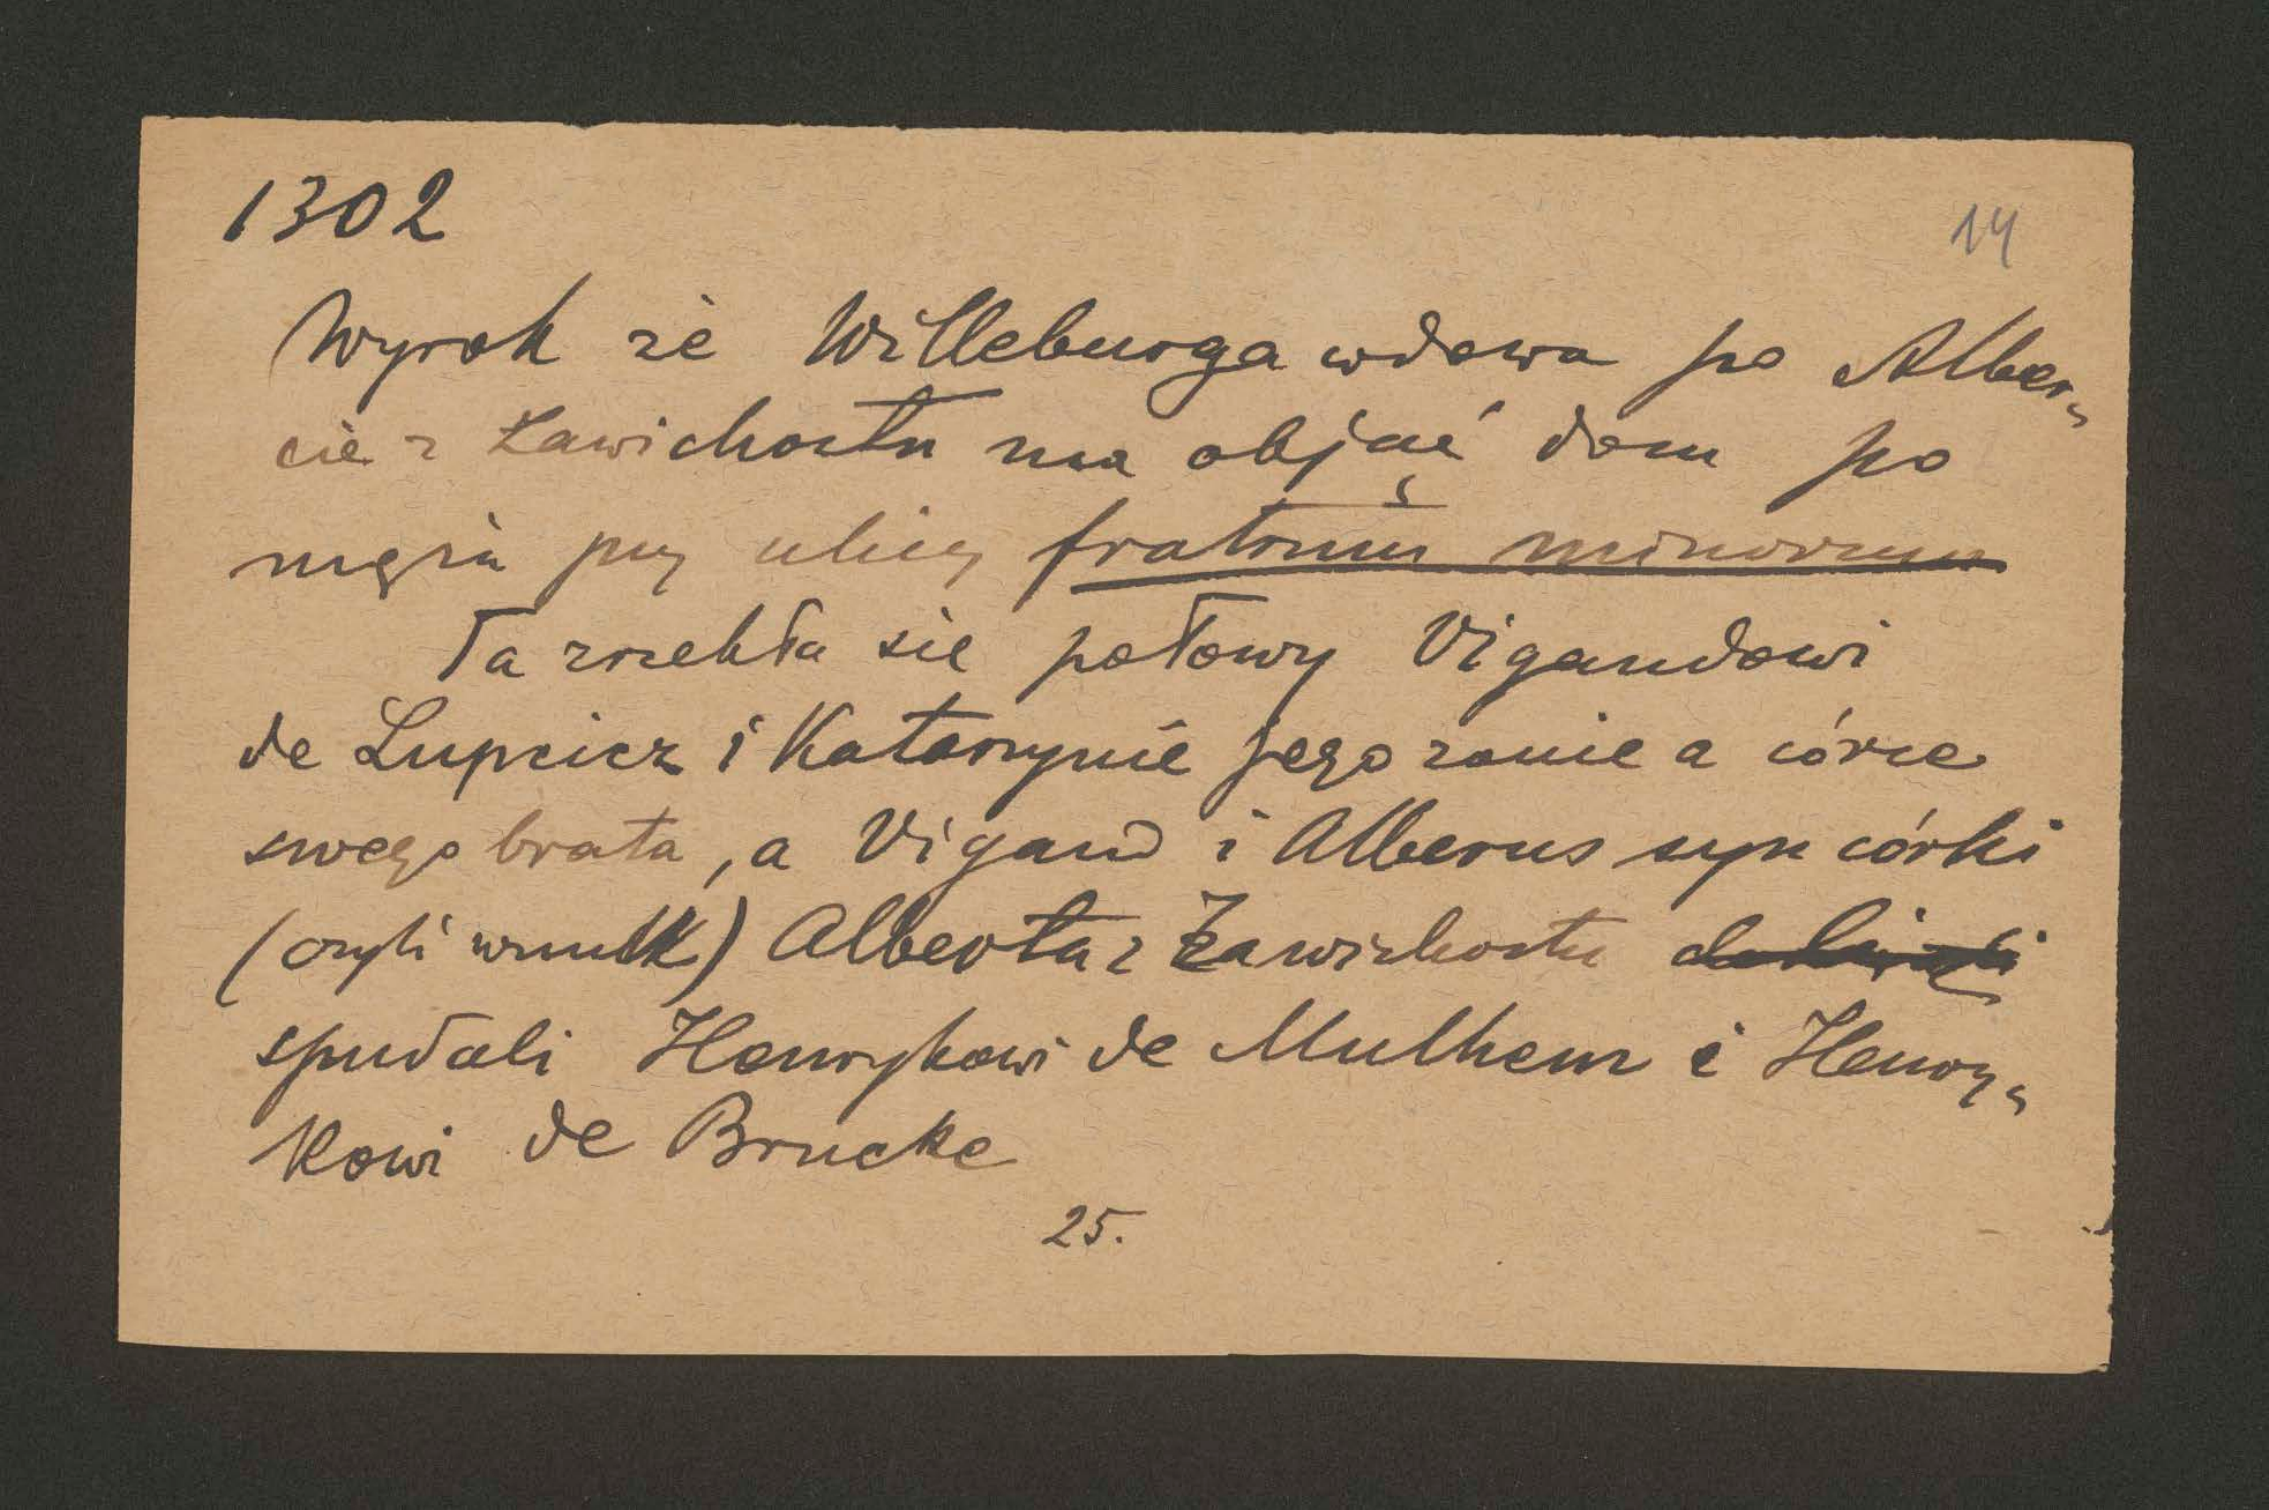 1302
14
Wyrok że Willeburga wdowa po Alber„
cie z Zawichostu ma objąć dom po
mężu przy ulicy fratrum minorum
Ta zrzekła się połowy Vigandowi
de Lupcicz i Katarzynie jego żonie a córce
swego brata, a Vigand i Alberus syn córki
(czyli wnuk) Alberta z Zawichostu
spudali Henrykowi de Mulhem i Henry„
kowi de Brucke
25.